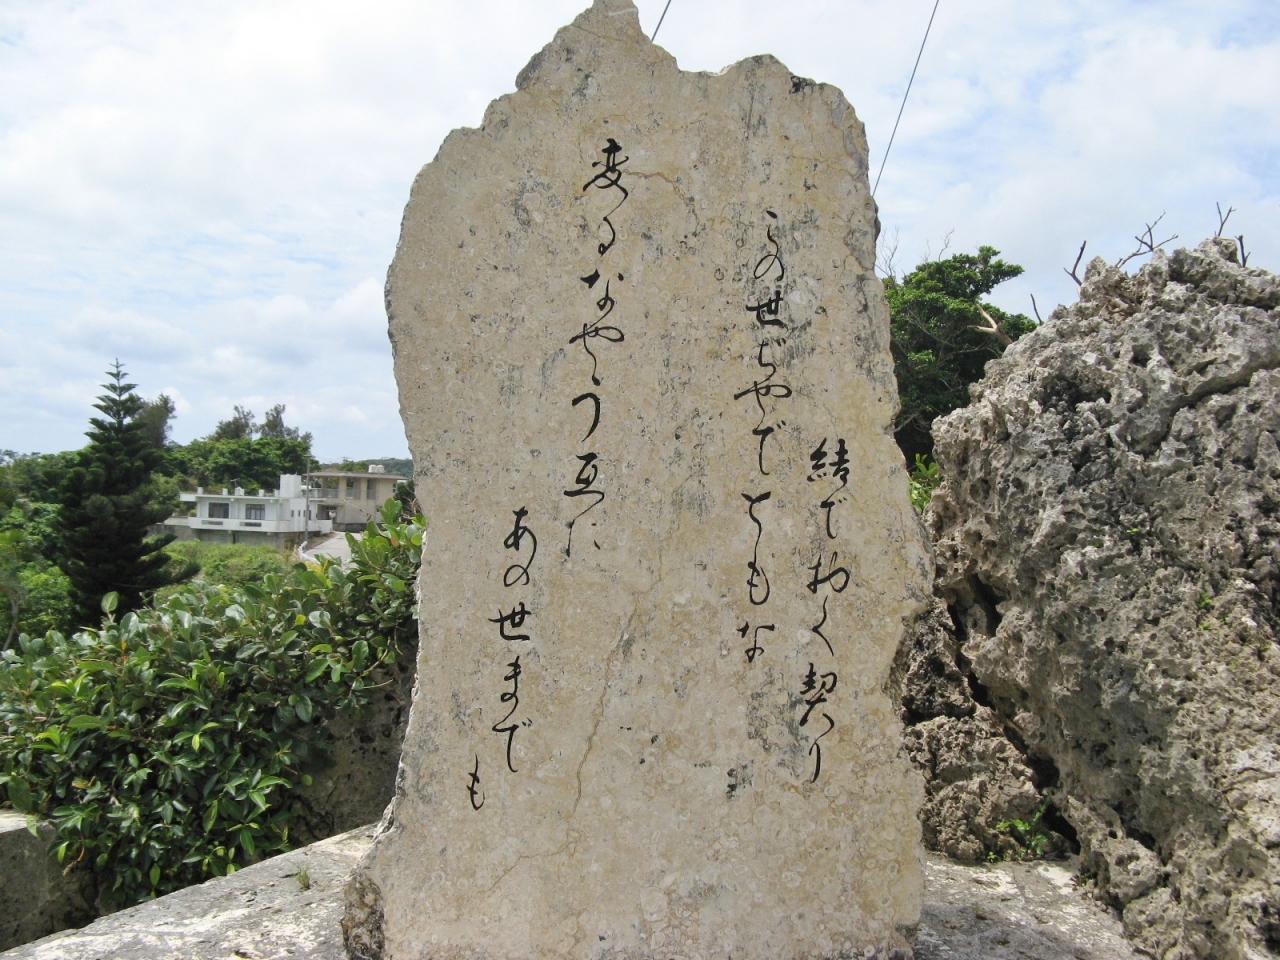 結でおく契り
この世ぢやでともな
変るなやう互に
あの世までも